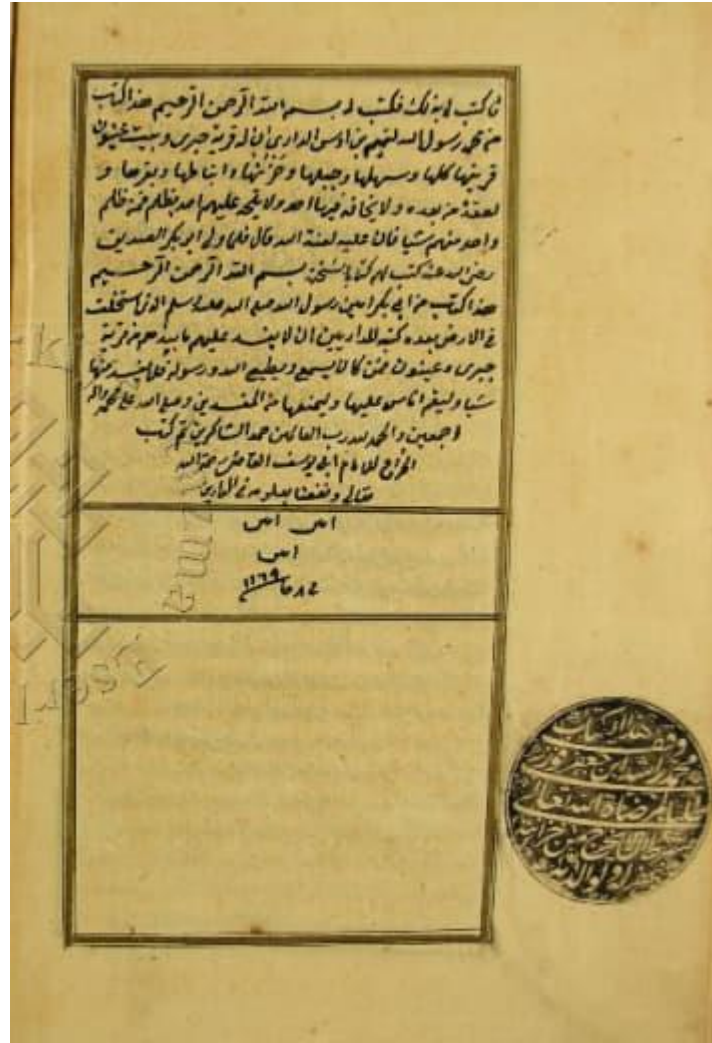 فاكتب لي بذلك فكتب له بسم الله الرحمن الرحيم هذا كتاب
من محمد رسول الله لتميم بن اوس الداري ان له قرية جبرى وبيت عينون
قريتها كلها وسهلها وجبلها وحرثها وانباطها وبقرها و
لعقبه من بعده ولا يحاقه فيها احد ولا يلجه عليهم احد بظلم فمن ظلم
واحد منهم شيا فان عليه لعنة الله قال فلما ولي ابو بكر الصديق
رضي الله عنه كتب لهم كتابا نسخته بسم الله الرحمن الرحيم
هذا كتاب من ابي بكر امين رسول الله صلى الله عليه وسلم الذي استخلف
في الارض بعده كتبه للداريين ان لا يفسد عليهم ما بيدهم من قرية
جبرى وعينون فمن كان يسمع ويطيع الله ورسوله فلا يفسد منها
شيا وليقم الناس عليها وليمنعها من المفسدين وصلى الله على محمد واله
اجمعين والحمد لله رب العالمين حمد الشاكرين تم كتاب
الخراج للامام ابي يوسف القاضي رحمه الله
تعالى ونفعنا بعلومه في الدارين
١١٦٩
هذا الكتاب
تعالى